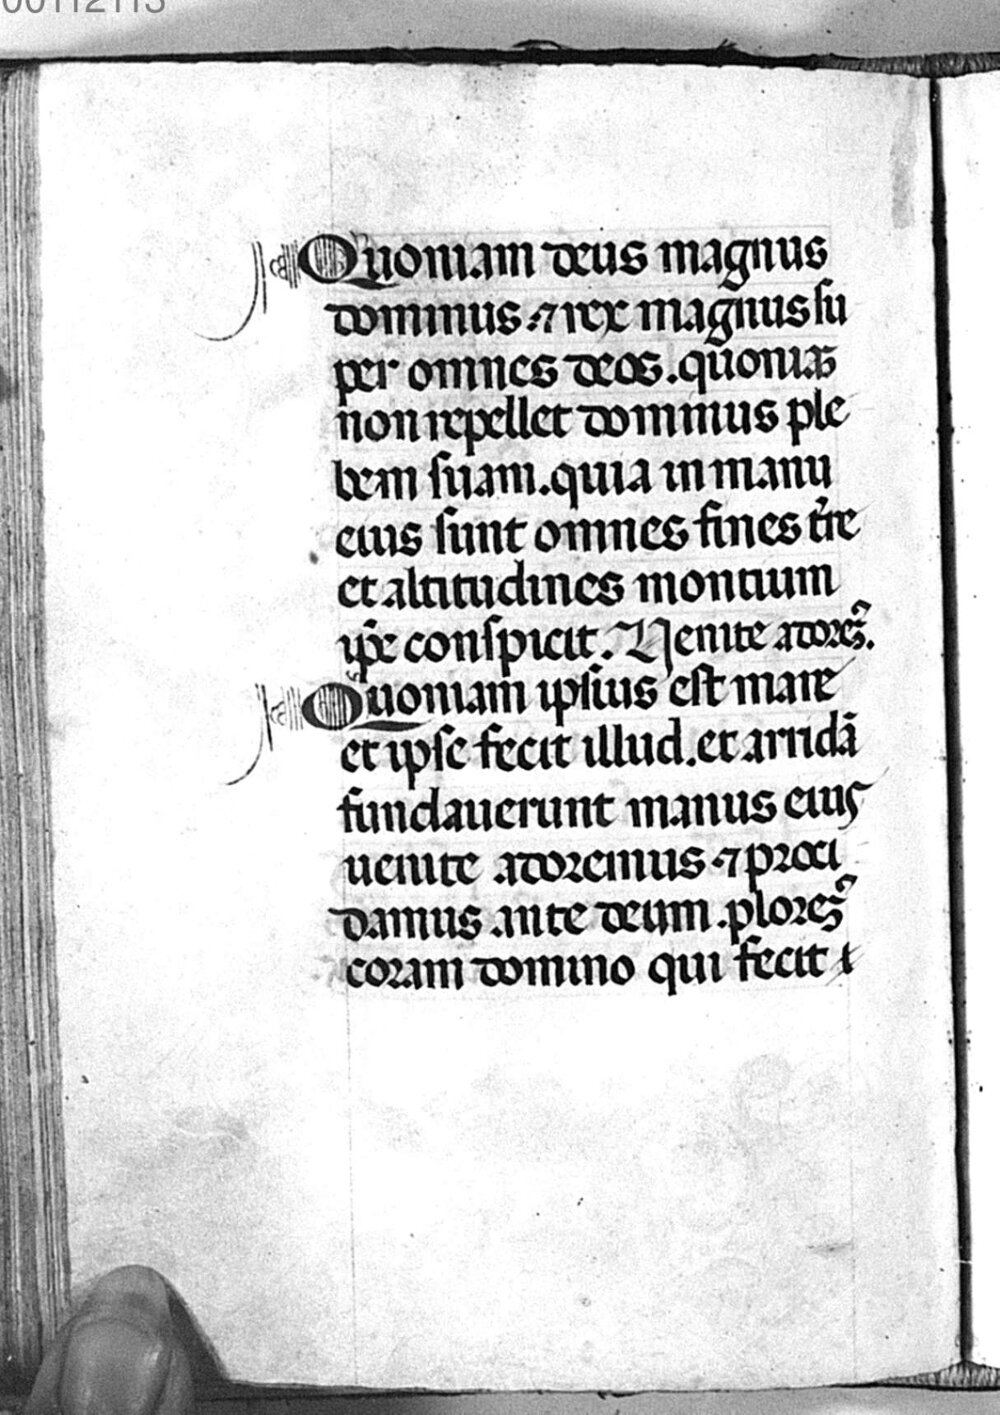 00112113
Quoniam deus magnus
dominus ⁊ rex magnus su
per omnes deos. quoniaꝫ
non repellet dominus ple
bem suam. quia in manu
eius sunt omnes fines tr̃e
et altitudines montium
ip̃e conspicit. Venite adorem᷒.
Quoniam ipsius est mare
et ipse fecit illud. et aridā
fundauerunt manus eius
uenite adoremus ⁊ proci
damus ante deum. plorem᷒
coram domino qui fecit